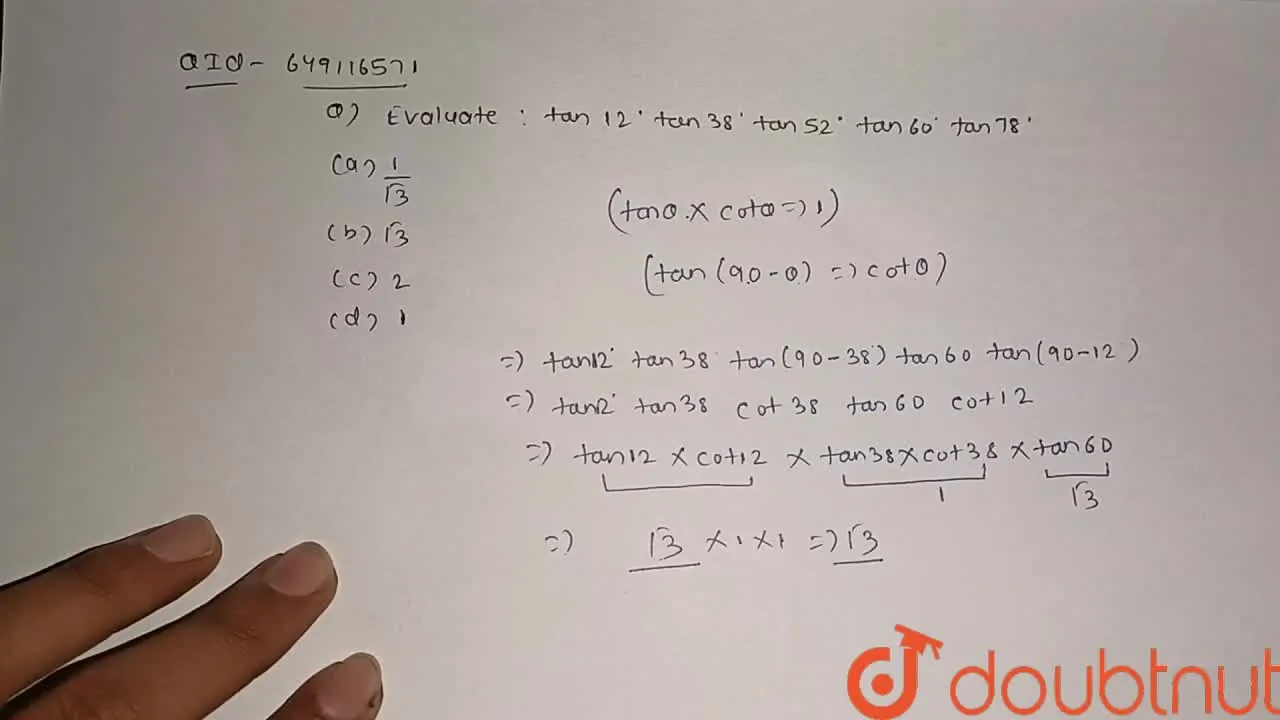 QID - 649116571
Q) Evaluate : tan 12° tan 38° tan 52° tan 60° tan 78°
(a) 1/√3
(b) √3
(c) 2
(d) 1
(tanθ × cotθ => 1)
(tan (90-θ) => cotθ)
=) tan12° tan 38° tan (90-38°) tan 60 tan (90-12)
=) tan12° tan 38 cot 38 tan 60 cot 12
=) tan 12 × cot 12 × tan 38 × cot 38 × tan 60
1 √3
=) √3 × 1 × 1 => √3
doubtnut